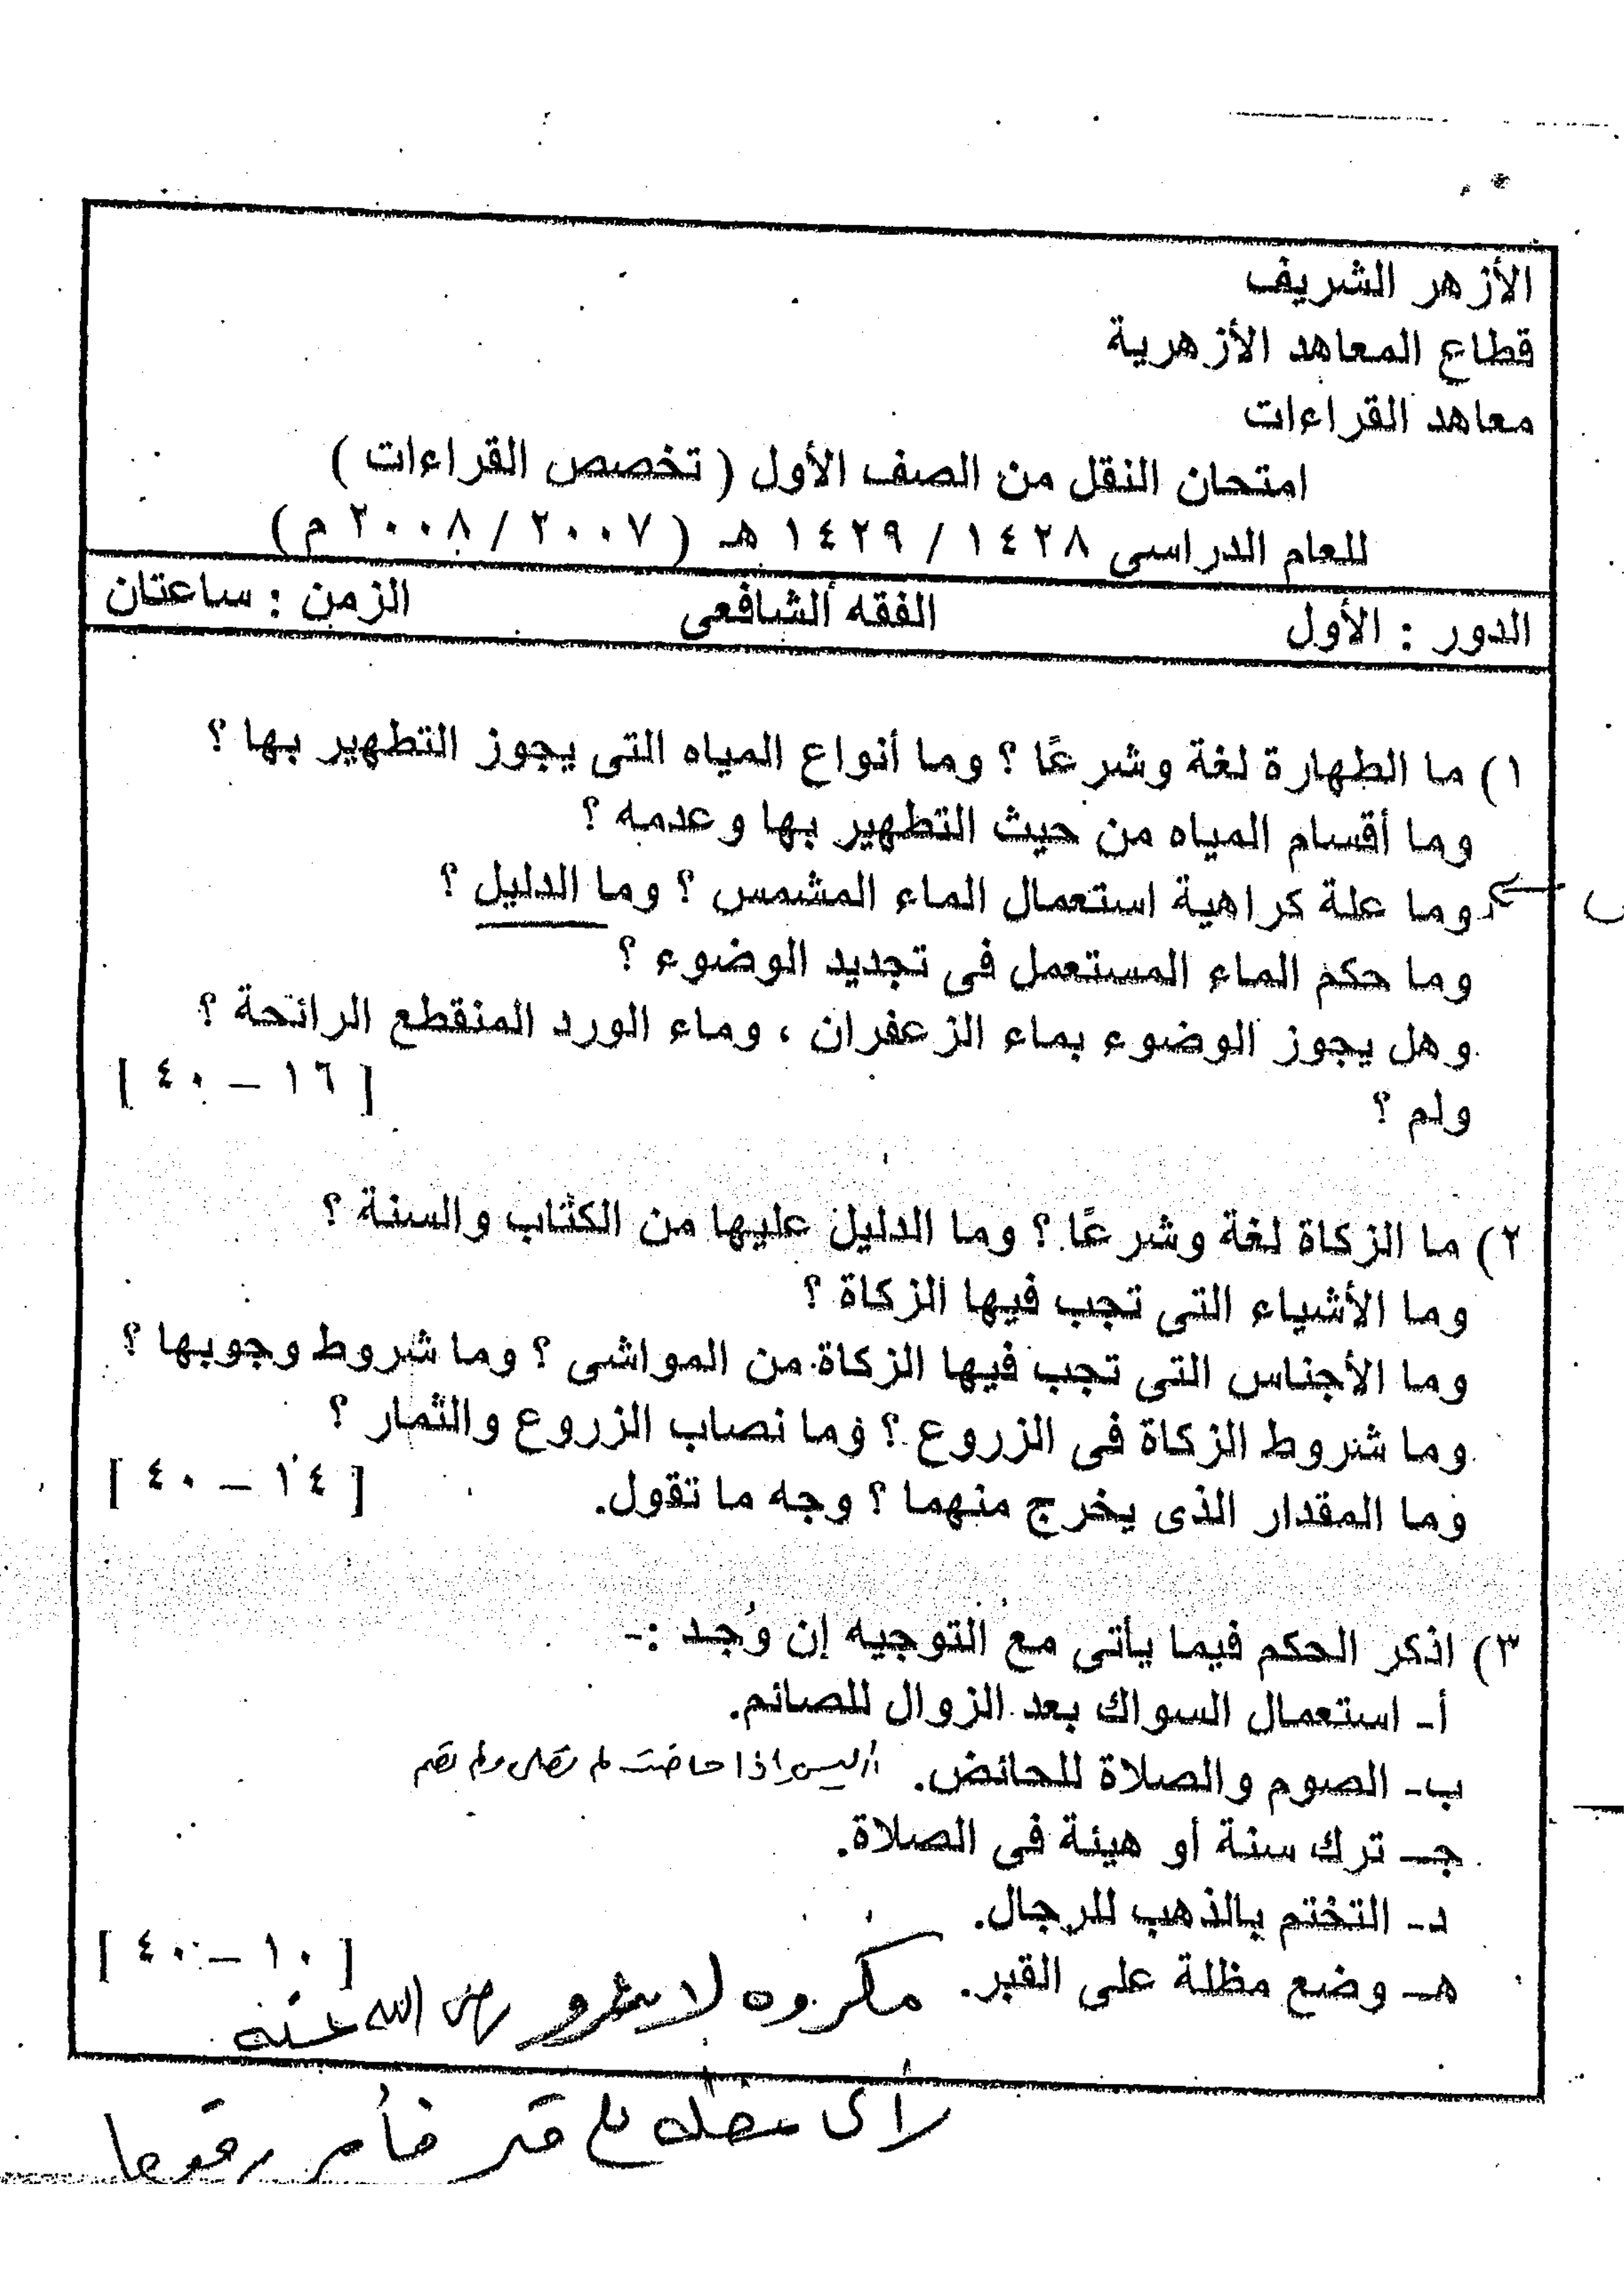 الأزهر الشريف
قطاع المعاهد الأزهرية
معاهد القراءات
امتحان النقل من الصف الأول ( تخصص القراءات )
للعام الدراسى ١٤٢٨ / ١٤٢٩ هـ ( ٢٠٠٧ / ٢٠٠٨ م )
الدور : الأول الفقه الشافعى الزمن : ساعتان
١) ما الطهارة لغة وشرعًا ؟ وما أنواع المياه التى يجوز التطهير بها ؟
وما أقسام المياه من حيث التطهير بها وعدمه ؟
وما علة كراهية استعمال الماء المشمس ؟ وما الدليل ؟
وما حكم الماء المستعمل فى تجديد الوضوء ؟
وهل يجوز الوضوء بماء الزعفران ، وماء الورد المنقطع الرائحة ؟
ولم ؟ [ ١٦ – ٤٠ ]
٢) ما الزكاة لغة وشرعًا ؟ وما الدليل عليها من الكتاب والسنة ؟
وما الأشياء التى تجب فيها الزكاة ؟
وما الأجناس التى تجب فيها الزكاة من المواشى ؟ وما شروط وجوبها ؟
وما شروط الزكاة فى الزروع ؟ وما نصاب الزروع والثمار ؟
وما المقدار الذى يخرج منهما ؟ وجه ما تقول. [ ١٤ – ٤٠ ]
٣) اذكر الحكم فيما يأتى مع التوجيه إن وُجد :-
أ- استعمال السواك بعد الزوال للصائم.
ب- الصوم والصلاة للحائض. أليس إذا حاضت لم تصلى ولم تصم
جـ- ترك سنة أو هيئة فى الصلاة.
د- التختم بالذهب للرجال.
هـ- وضع مظلة على القبر. [ ١٠ – ٤٠ ]
مكروه رضى الله عنه
رأى على قبر فأمر